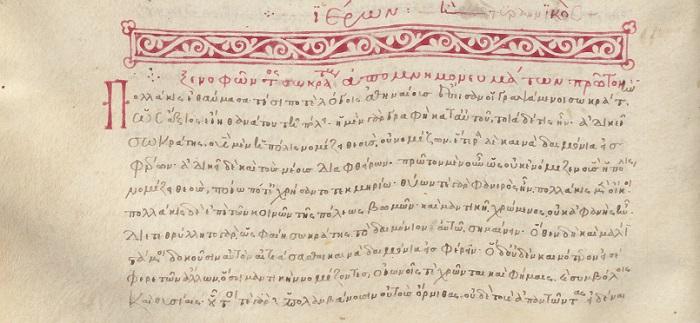 ἱέρων:
ξενοφῶντος σωκράτους ἀπομνημονευμάτων πρῶτον
Πολλάκις ἐθαύμασα τίσι ποτὲ λόγοις ἀθηναίους ἔπεισαν οἱ γραψάμενοι σωκράτην
ὡς ἄξιος εἴη θανάτου τῇ πόλει· ἡ μὲν γὰρ γραφὴ κατ' αὐτοῦ, τοιάδε τις ἦν· ἀδικεῖ
σωκράτης, οὓς μὲν ἡ πόλις νομίζει θεοὺς, οὐ νομίζων. ἕτερα δὲ καινὰ δαιμόνια εἰσ
φέρων· ἀδικεῖ δὲ καὶ τοὺς νέους διαφθείρων· πρῶτον μὲν οὖν ὡς οὐκ ἐνόμιζεν οὓς ἡ πόλις
νομίζει θεοὺς, ποίῳ ποτ' ἐχρήσαντο τεκμηρίῳ· θύων τε γὰρ φανερὸς ἦν. πολλάκις μὲν οἴκοι·
πολλάκις δὲ ἐπὶ τῶν κοινῶν τῆς πόλεως βωμῶν· καὶ μαντικῇ χρώμενος, οὐκ ἀφανὴς ἦν·
διετεθρύλλητο γὰρ, ὡς φαίη σωκράτης τὸ δαιμόνιον ἑαυτῷ σημαίνειν· ὅθεν δὴ καὶ μάλι
στά μοι δοκοῦσιν αὐτὸν αἰτιάσασθαι καινὰ δαιμόνια εἰσφέρειν· ὁ δ' οὐδὲν καινότερον εἰσέ
φερε τῶν ἄλλων, ὅσοι μαντικὴν νομίζοντες, οἰωνοῖς τε χρῶνται καὶ φήμαις, καὶ συμβόλοις
καὶ θυσίαις· οὗτοί τε γὰρ ὑπολαμβάνουσιν οὐ τοὺς ὄρνιθας, οὐδὲ τοὺς ἀπαντῶντας εἰδέναι